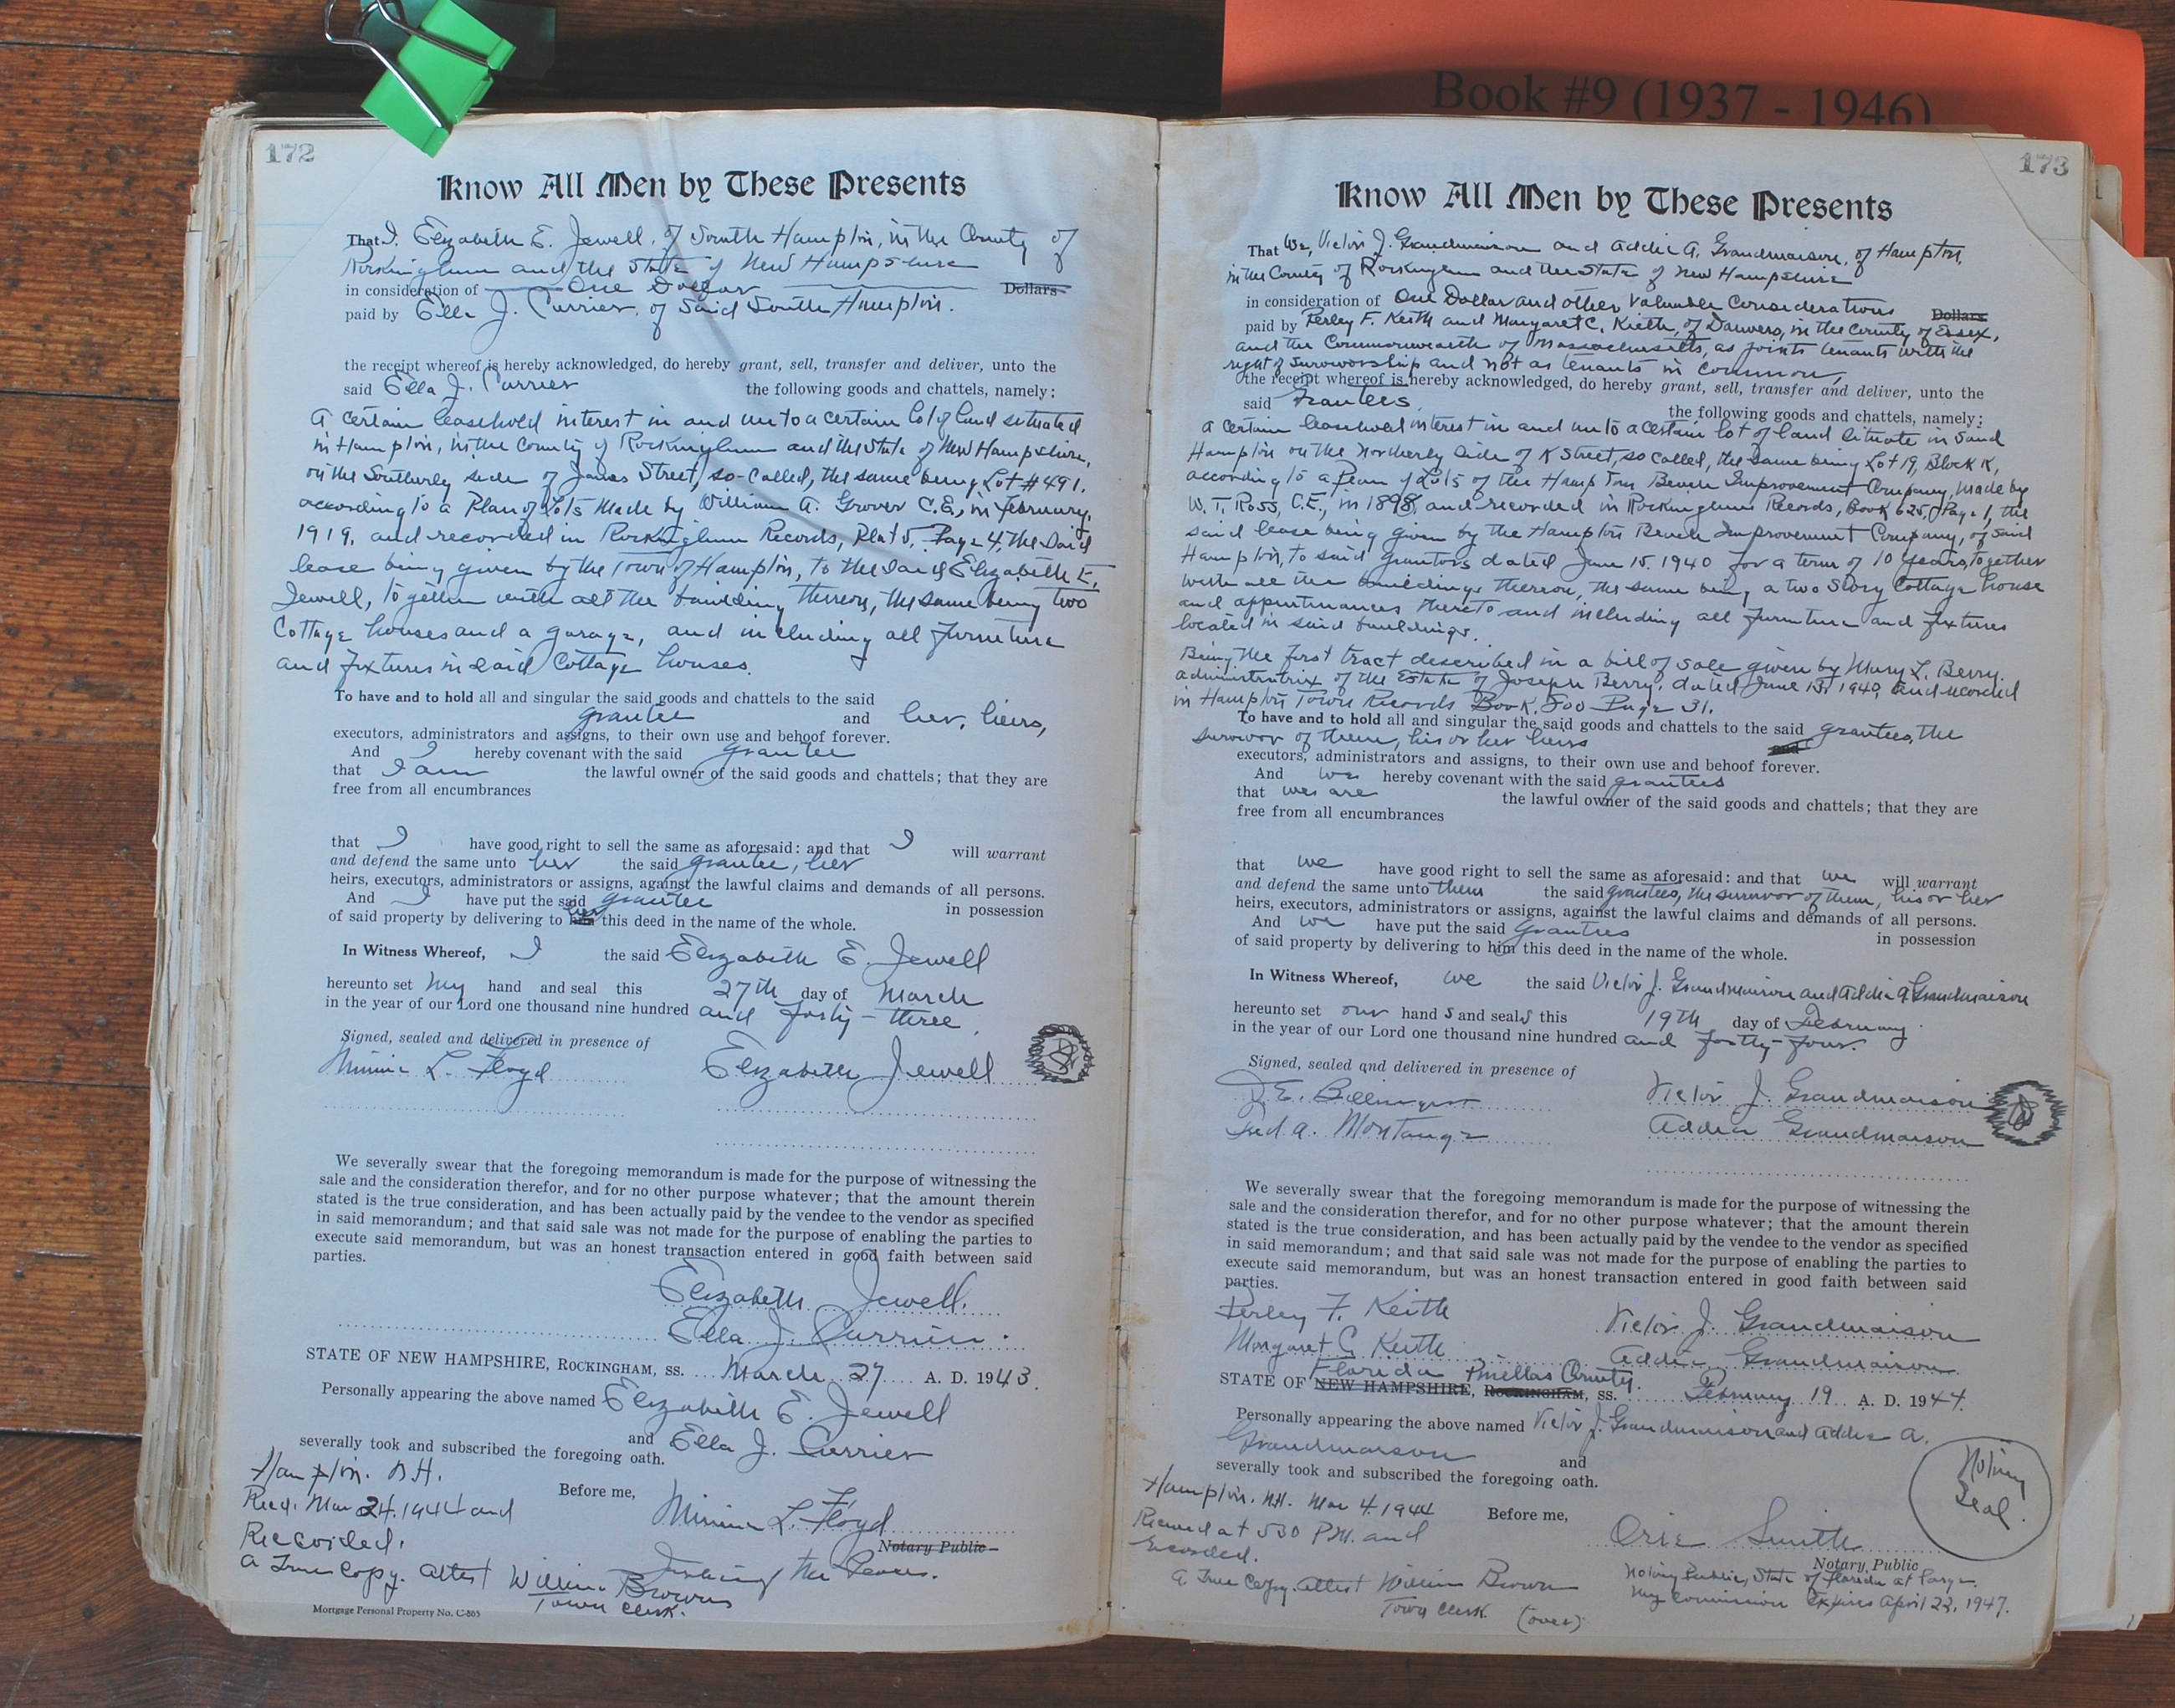 Book #9 (1937 - 1946)
172
Know All Men by These Presents
That I, Elizabeth E. Jewell, of South Hampton, in the County of
Rockingham and the State of New Hampshire
in consideration of One Dollar Dollars
paid by Ella J. Currier, of Said South Hampton.
the receipt whereof is hereby acknowledged, do hereby grant, sell, transfer and deliver, unto the
said Ella J. Currier the following goods and chattels, namely:
A certain leasehold interest in and unto a certain lot of land situated
in Hampton, in the County of Rockingham and the State of New Hampshire,
on the Southerly side of James Street, so-called, the same being Lot #491.
according to a Plan of Lots made by William A. Grover C.E., in February,
1919, and recorded in Rockingham Records, Plat 5, Page 4, the said
lease being given by the Town of Hampton, to the said Elizabeth E.
Jewell, together with all the building thereon, the same being two
Cottage houses and a garage, and including all furniture
and fixtures in said Cottage houses.
To have and to hold all and singular the said goods and chattels to the said
grantee and her, heirs,
executors, administrators and assigns, to their own use and behoof forever.
And I hereby covenant with the said grantee
that I am the lawful owner of the said goods and chattels; that they are
free from all encumbrances
that I have good right to sell the same as aforesaid: and that I will warrant
and defend the same unto her the said grantee, her
heirs, executors, administrators or assigns, against the lawful claims and demands of all persons.
And I have put the said grantee in possession
of said property by delivering to her this deed in the name of the whole.
In Witness Whereof, I the said Elizabeth E. Jewell
hereunto set my hand and seal this 27th day of March
in the year of our Lord one thousand nine hundred and forty-three.
Signed, sealed and delivered in presence of
Minnie L. Floyd Elizabeth Jewell
We severally swear that the foregoing memorandum is made for the purpose of witnessing the
sale and the consideration therefor, and for no other purpose whatever; that the amount therein
stated is the true consideration, and has been actually paid by the vendee to the vendor as specified
in said memorandum; and that said sale was not made for the purpose of enabling the parties to
execute said memorandum, but was an honest transaction entered in good faith between said
parties.
Elizabeth Jewell.
Ella J. Currier.
STATE OF NEW HAMPSHIRE, ROCKINGHAM, ss. March 27 A. D. 1943.
Personally appearing the above named Elizabeth E. Jewell
and Ella J. Currier
severally took and subscribed the foregoing oath.
Hampton. N.H.
Recd. Mar 24. 1944 and
Recorded.
Before me,
Minnie L. Floyd
Notary Public
Justice of the Peace.
A True Copy. Attest William Brown
Town Clerk.
Mortgage Personal Property No. C-803
173
Know All Men by These Presents
That We, Victor J. Grandmaison and Addie A. Grandmaison, of Hampton,
in the County of Rockingham and the State of New Hampshire
in consideration of One Dollar and other valuable Considerations Dollars
paid by Perley F. Keith and Margaret C. Kieth, of Danvers, in the County of Essex,
and the Commonwealth of Massachusetts, as joints tenants with the
right of survivorship and not as tenants in common,
the receipt whereof is hereby acknowledged, do hereby grant, sell, transfer and deliver, unto the
said Grantees, the following goods and chattels, namely:
A certain leasehold interest in and unto a certain lot of land situate in said
Hampton on the Northerly side of K Street, so called, the same being Lot 19, Block K,
according to a Plan of Lots of the Hampton Beach Improvement Company, made by
W. T. Ross, C.E., in 1898, and recorded in Rockingham Records, Book 625, Page 1, the
said lease being given by the Hampton Beach Improvement Company, of said
Hampton, to said grantors dated June 15. 1940 for a term of 10 years, together
with all the buildings thereon, the same being a two Story Cottage house
and appurtenances thereto and including all furniture and fixtures
located in said buildings.
Being the first tract described in a bill of sale given by Mary L. Berry.
administratrix of the Estate of Joseph Berry, dated June 13, 1940, and recorded
in Hampton Town Records Book. 800 Page 31.
To have and to hold all and singular the said goods and chattels to the said grantees, the
survivor of them, his or her heirs and
executors, administrators and assigns, to their own use and behoof forever.
And we hereby covenant with the said grantees
that we are the lawful owner of the said goods and chattels; that they are
free from all encumbrances
that we have good right to sell the same as aforesaid: and that we will warrant
and defend the same unto them the said grantees, the survivor of them, his or her
heirs, executors, administrators or assigns, against the lawful claims and demands of all persons.
And we have put the said Grantees in possession
of said property by delivering to him this deed in the name of the whole.
In Witness Whereof, we the said Victor J. Grandmaison and Addie A. Grandmaison
hereunto set our hands and seals this 19th day of February
in the year of our Lord one thousand nine hundred and forty-four.
Signed, sealed and delivered in presence of
Victor J. Grandmaison
Fred A. Montange Addie Grandmaison
We severally swear that the foregoing memorandum is made for the purpose of witnessing the
sale and the consideration therefor, and for no other purpose whatever; that the amount therein
stated is the true consideration, and has been actually paid by the vendee to the vendor as specified
in said memorandum; and that said sale was not made for the purpose of enabling the parties to
execute said memorandum, but was an honest transaction entered in good faith between said
parties.
Perley F. Keith Victor J. Grandmaison
Margaret C. Keith Addie Grandmaison
Florida Pinellas County.
STATE OF NEW HAMPSHIRE, ROCKINGHAM, ss. February 19 A. D. 1944.
Personally appearing the above named Victor J. Grandmaison and Addie A.
Grandmaison and
severally took and subscribed the foregoing oath.
Notary
Seal.
Hampton. N.H. Mar 4. 1944
Received at 530 P.M. and
Recorded.
Before me,
Orie Smith
Notary Public
Notary Public, State of Florida at large.
My Commission Expires April 22, 1947.
A True Copy. Attest William Brown
Town Clerk. (over)